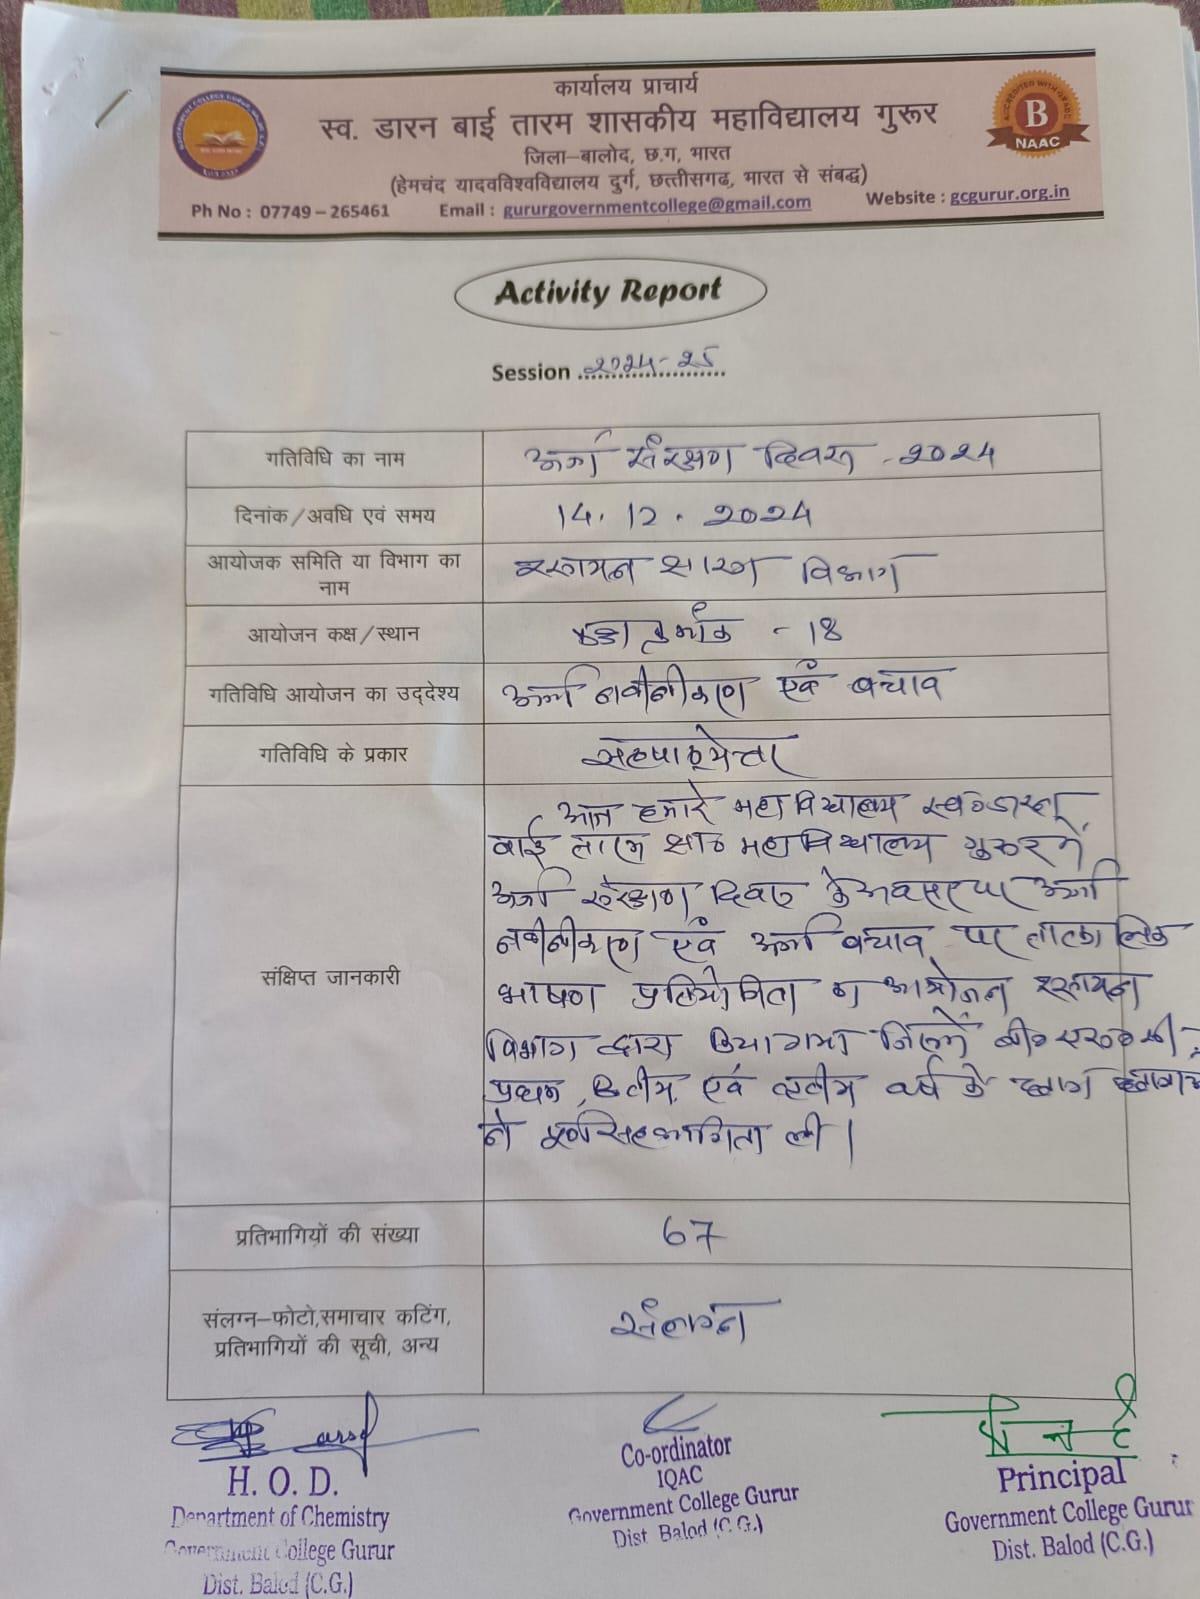 कार्यालय प्राचार्य
स्व. डारन बाई तारम शासकीय महाविद्यालय गुरूर
जिला–बालोद, छ.ग, भारत
(हेमचंद यादवविश्वविद्यालय दुर्ग, छत्तीसगढ, भारत से संबद्ध)
Ph No : 07749 – 265461 Email : gururgovernmentcollege@gmail.com Website : gcgurur.org.in
ACCREDITED WITH GRADE
B
NAAC
Activity Report
Session 2024-25
गतिविधि का नाम ऊर्जा संरक्षण दिवस - 2024
दिनांक/अवधि एवं समय 14.12.2024
आयोजक समिति या विभाग का रसायन शास्त्र विभाग
नाम
आयोजन कक्ष/स्थान कक्ष क्रमांक - 18
गतिविधि आयोजन का उद्देश्य ऊर्जा नवीनीकरण एवं बचाव
गतिविधि के प्रकार सहपाठ्येत्तर
संक्षिप्त जानकारी
आज हमारे महाविद्यालय स्व०डारन
बाई तारम शास० महाविद्यालय गुरूर में
ऊर्जा संरक्षण दिवस के अवसर पर ऊर्जा
नवीनीकरण एवं ऊर्जा बचाव पर तात्कालिक
भाषण प्रतियोगिता का आयोजन रसायन
विभाग द्वारा किया गया जिसमें बी०एस०सी०
प्रथम, द्वितीय एवं तृतीय वर्ष के छात्र
ने पूर्ण सहभागिता ली।
प्रतिभागियों की संख्या 67
संलग्न–फोटो,समाचार कटिंग, संलग्न
प्रतिभागियों की सूची, अन्य
H. O. D.
Department of Chemistry
Government College Gurur
Dist. Balod (C.G.)
Co-ordinator
IQAC
Government College Gurur
Dist. Balod (C.G.)
Principal
Government College Gurur
Dist. Balod (C.G.)